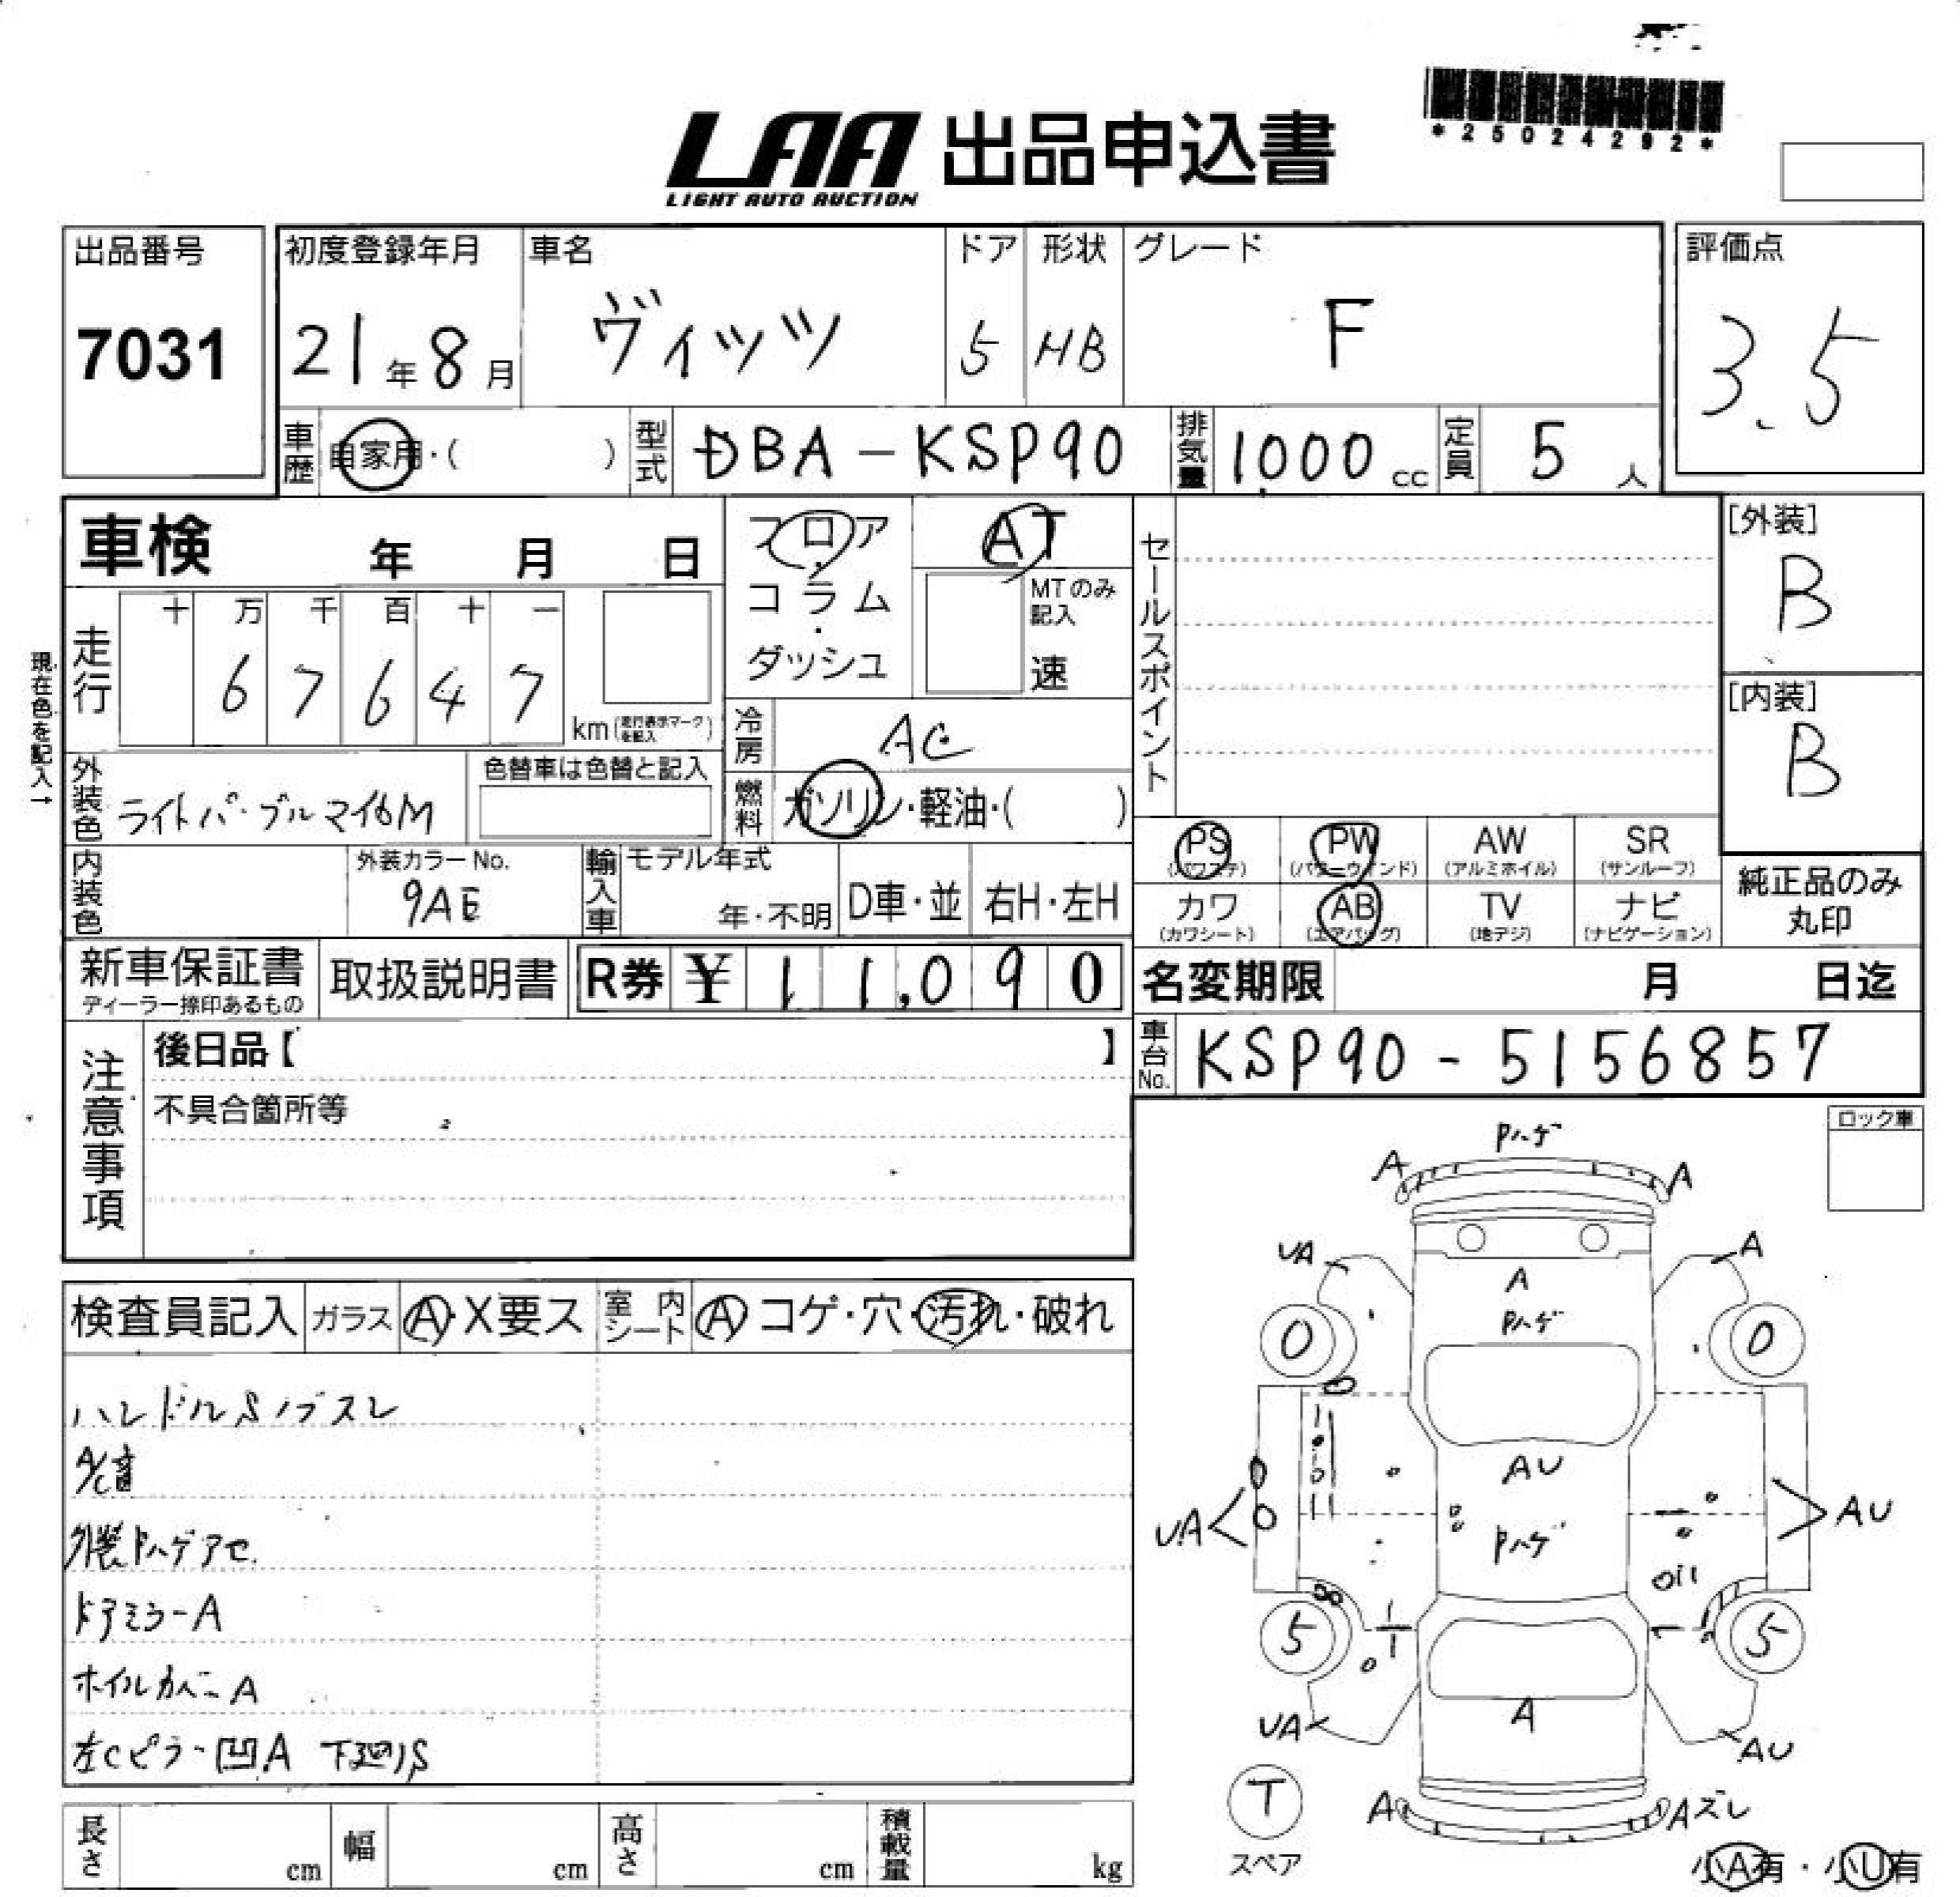 *25024292*
LAA 出品申込書
LIGHT AUTO AUCTION
出品番号
7031
初度登録年月
21年8月
車名
ヴィッツ
ドア
5
形状
HB
グレード
F
評価点
3.5
車歴
自家用・( )
型式
DBA-KSP90
排気量
1,000 cc
定員
5 人
車検 年 月 日
フロア・コラム・ダッシュ
AT
MTのみ記入
速
セールスポイント
[外装]
B
[内装]
B
現在色を記入→
走行
十 万 千 百 十 一
6 7 6 4 7
km(走行表示マークを記入)
冷房
AC
燃料
ガソリン・軽油・( )
外装色
色替車は色替と記入
内装色
外装カラーNo.
9AE
輸入車
モデル年式
年・不明
D車・並
右H・左H
PS
(パワステ)
PW
(パワーウインド)
AW
(アルミホイル)
SR
(サンルーフ)
カワ
(カワシート)
AB
(エアバッグ)
TV
(地デジ)
ナビ
(ナビゲーション)
純正品のみ
丸印
新車保証書
ディーラー捺印あるもの
取扱説明書
R券 ¥11,090
名変期限 月 日迄
車台No.
KSP90-5156857
注意事項
後日品【 】
不具合箇所等
ロック車
検査員記入
ガラス
A・X要ス
室内シート
A コゲ・穴・汚れ・破れ
ハンドルSノブスレ
A/C音
外装Pハゲアセ
ドアミラーA
ホイルカバーA
左Cピラー凹A 下廻りS
Pハゲ
A A
UA A
A
Pハゲ
0 0
AU
UA AU
Pハゲ
5 5
UA A AU
T
スペア
A Aズレ
小A有・小U有
長さ cm
幅 cm
高さ cm
積載量 kg